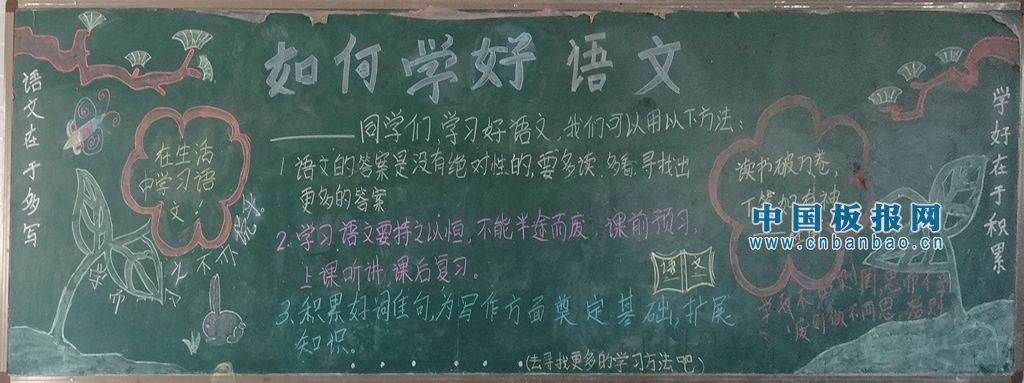 如何学好语文
语文在于多写
学好在于积累
在生活
中学习语
文!
同学们,学习好语文,我们可以用以下方法:
1.语文的答案是没有绝对性的,要多读、多看、寻找出
更多的答案
2.学习语文要持之以恒,不能半途而废,课前预习,
上课听讲,课后复习。
3.积累好词佳句,为写作方面奠定基础,扩展
知识。
(去寻找更多的学习方法吧)
语文
读书破万卷,
下笔如有神
中国板报网
www.cnbanbao.cn